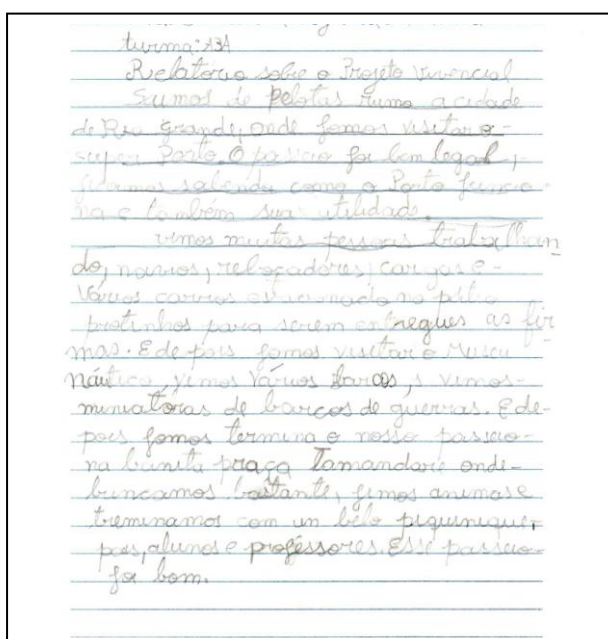 turma: A3A
Relatório sobre o Projeto Vivencial
Saimos de pelotas rumo a cidade
de Rio grande, onde fomos visitar o-
super Porto. O passeio foi bem legal,
ficamos sabendo como o Porto funcio-
na e também sua utilidade.
vimos muitas pessoas trabalhan
do, navios, rebocadores, cargas e-
Vários carros estacionado no pátio
protinhos para serem entregues as fir
mas. E de pois fomos visitar o Museu
náutico, vimos Vários barcos, vimos-
miniatóras de barcos de guerras. E de-
pois fomos termina o nosso passeio-
na bunita praça Tamandaré onde-
brincamos bastante, vimos animas e
treminamos com un belo piquinique,
pais, alunos e proféssores. Esse passeio-
foi bom.